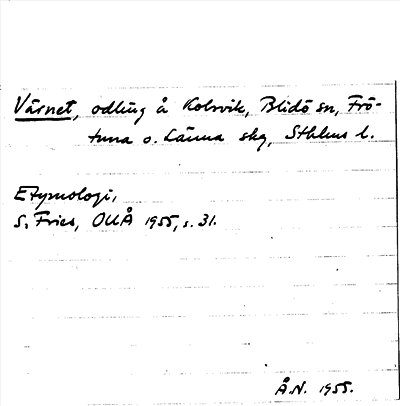 Värnet, odling å Kolsvik, Blidö sn, Frö-
tuna o. Länna skg, Sthlms l.
Etymologi,
S. Fries, OUÅ 1955, s. 31.
Å.N. 1955.